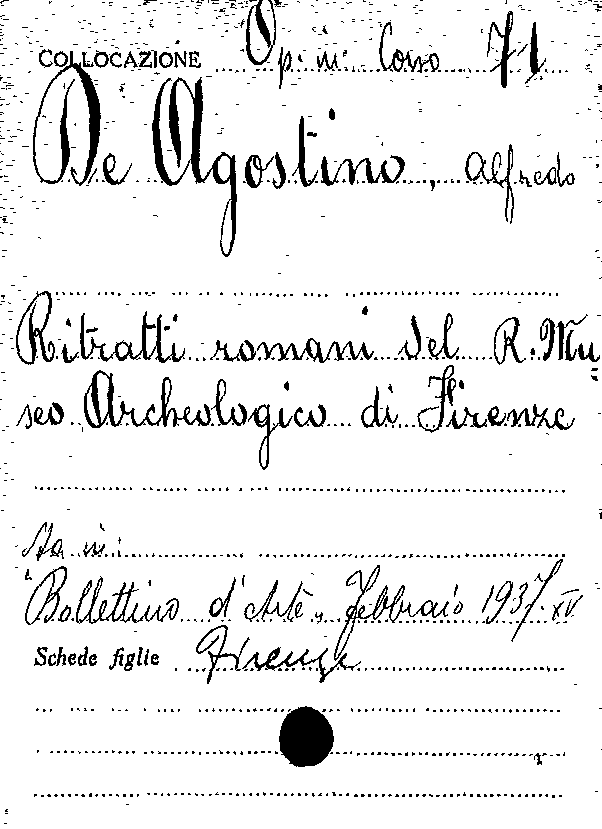 COLLOCAZIONE Op. in Cons 71
De Agostino, Alfredo
Ritratti romani del R. Mu=
seo Archeologico di Firenze
Sta in:
"Bollettino d'Arte" Febbraio 1937-XV
Schede figlie Firenze